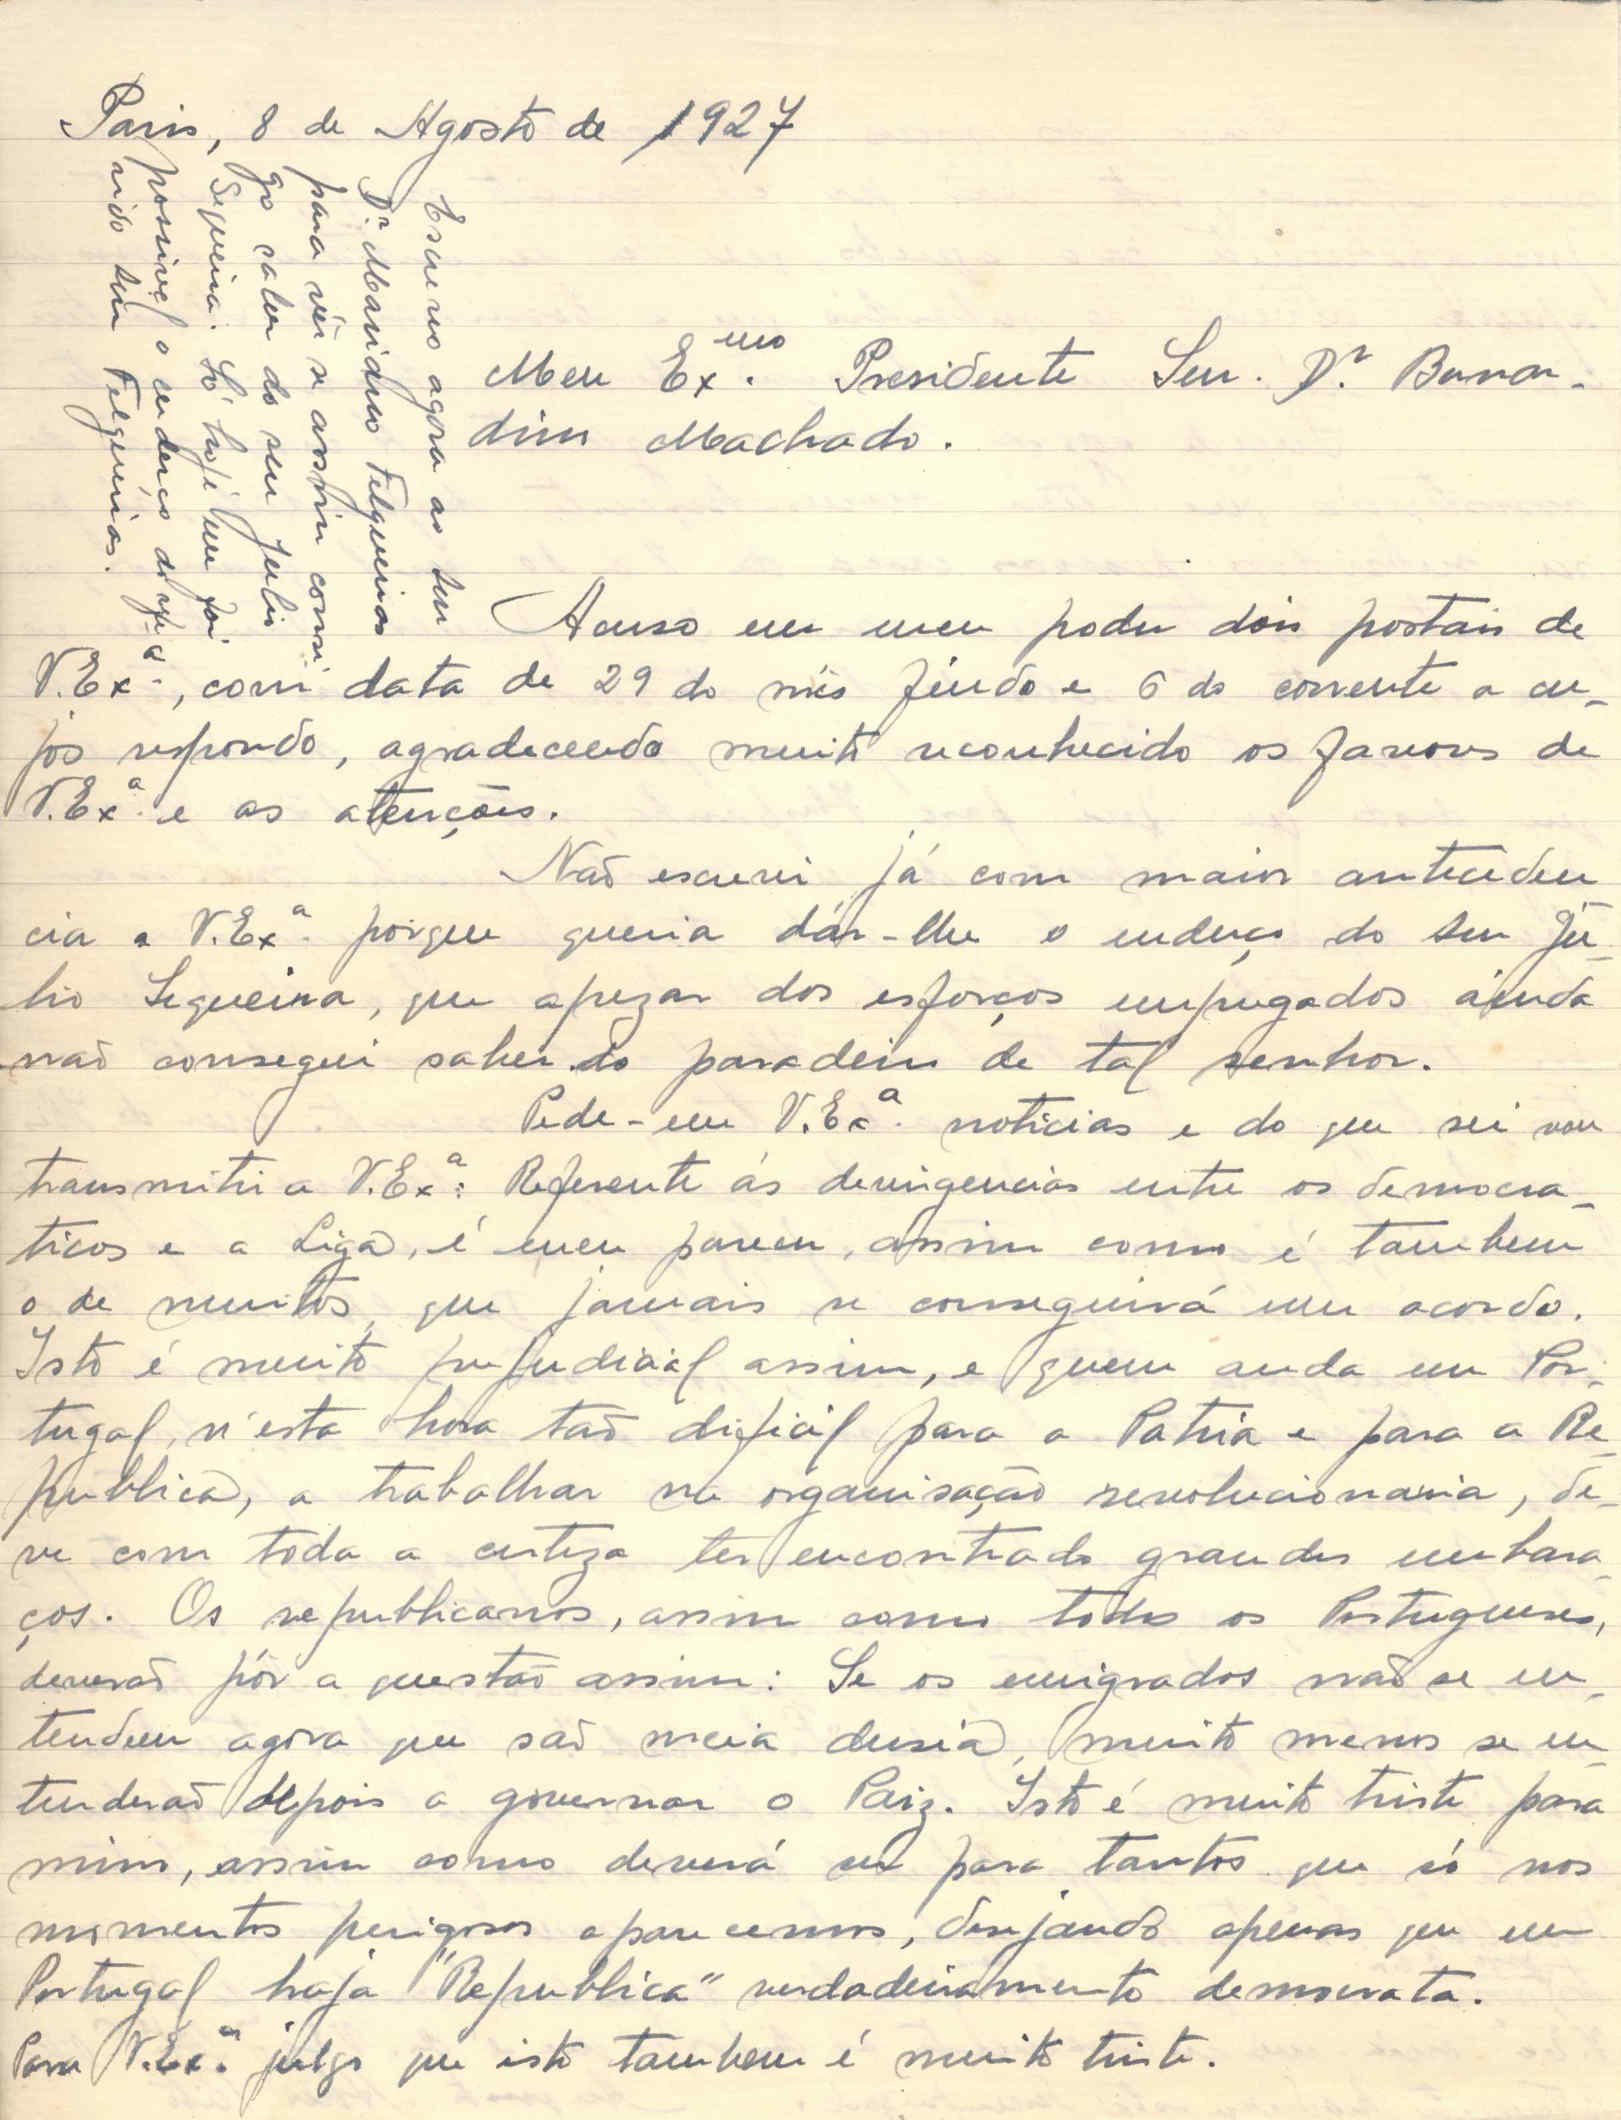 Paris, 8 de Agosto de 1927
Escrevo agora ao Snr
Dr. Marianno Felgueiras
para vêr se assim consi
go saber do seu Julio
Sequeira. Só hoje me foi
possivel o endereço do
snr Felgueiras.
Meu Exmo. Presidente Snr. Dr. Bernar-
dino Machado.
Acuso em meu poder dois postais de
V.Exa., com data de 29 do mês findo e 6 do corrente a cu-
jos respondo, agradecendo muito reconhecido os favores de
V.Exa. e as atenções.
Não escrevi já com maior anteceden
cia a V.Exa. porque queria dár-lhe o endereço do Snr Jú-
lio Sequeira, que apezar dos esforços empregados áinda
não consegui saber do paradeiro de tal senhor.
Pede-me V.Exa. noticias e do que sei vou
transmitir a V.Exa.: Referente ás devirgencias entre os democra-
ticos e a Liga, é meu parecer, assim como é tambem
o de muitos, que jamais se conseguirá um acordo.
Isto é muito prejudicial assim, e quem anda em Por-
tugal, n'esta hora tão dificil para a Patria e para a Re-
publica, a trabalhar na organisação revolucionaria, de-
ve com toda a certeza ter encontrado grandes embara-
ços. Os republicanos, assim como todos os Portugueses,
deverão pôr a questão assim: Se os emigrados não se en-
tendem agora que são meia dusia, muito menos se en-
tenderão depois a governar o Paiz. Isto é muito triste para
mim, assim como deverá ser para tantos que só nos
momentos perigosos aparecemos, desejando apenas que em
Portugal haja "Republica" verdadeiramente democrata.
Para V.Exa. julgo que isto tambem é muito triste.